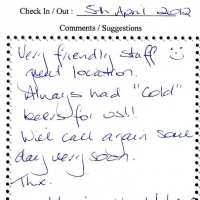 Check In / Out : 5th April 2012
Comments / Suggestions
Very friendly staff
great location.
Always had "cold"
beers for us!!
We'll call again some
day very soon.
Thx.